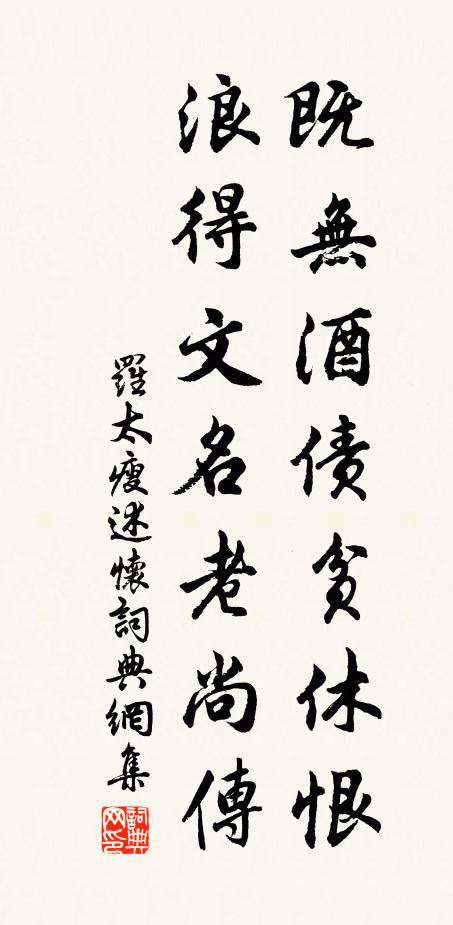 既無酒债貧休恨
浪得文名老尚傳
羅太瘦述懷詞典網集
詞典网印